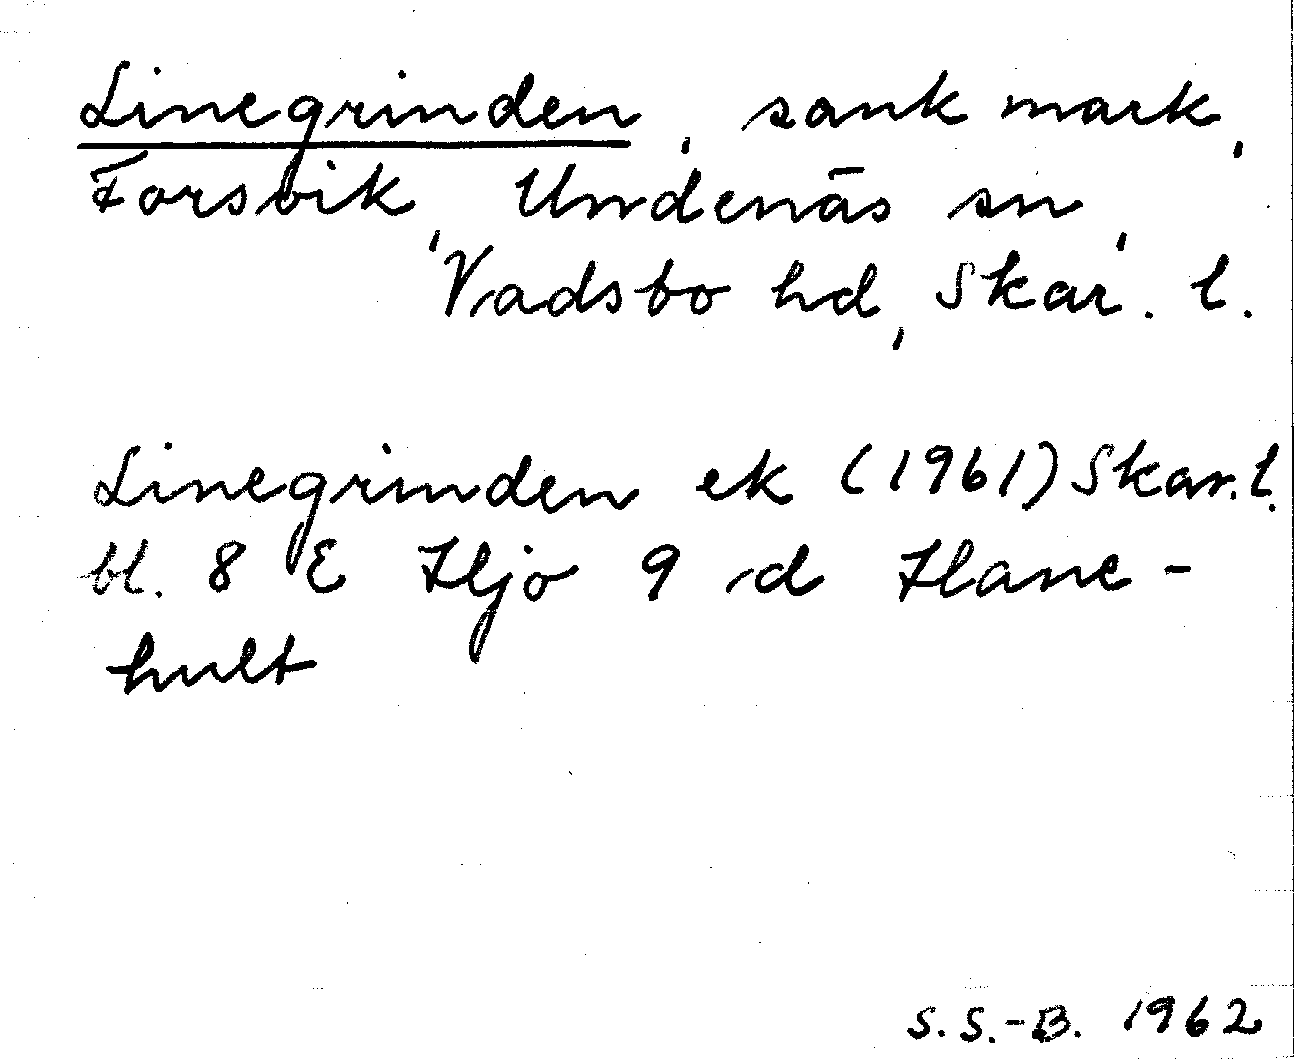 Linegrinden, sank mark,
Forsvik, Undenäs sn,
Vadsbo hd, Skar. l.
Linegrinden ek (1961) Skar. l.
bl. 8 E Hjo 9 d Hane-
hult
S. S.-B. 1962